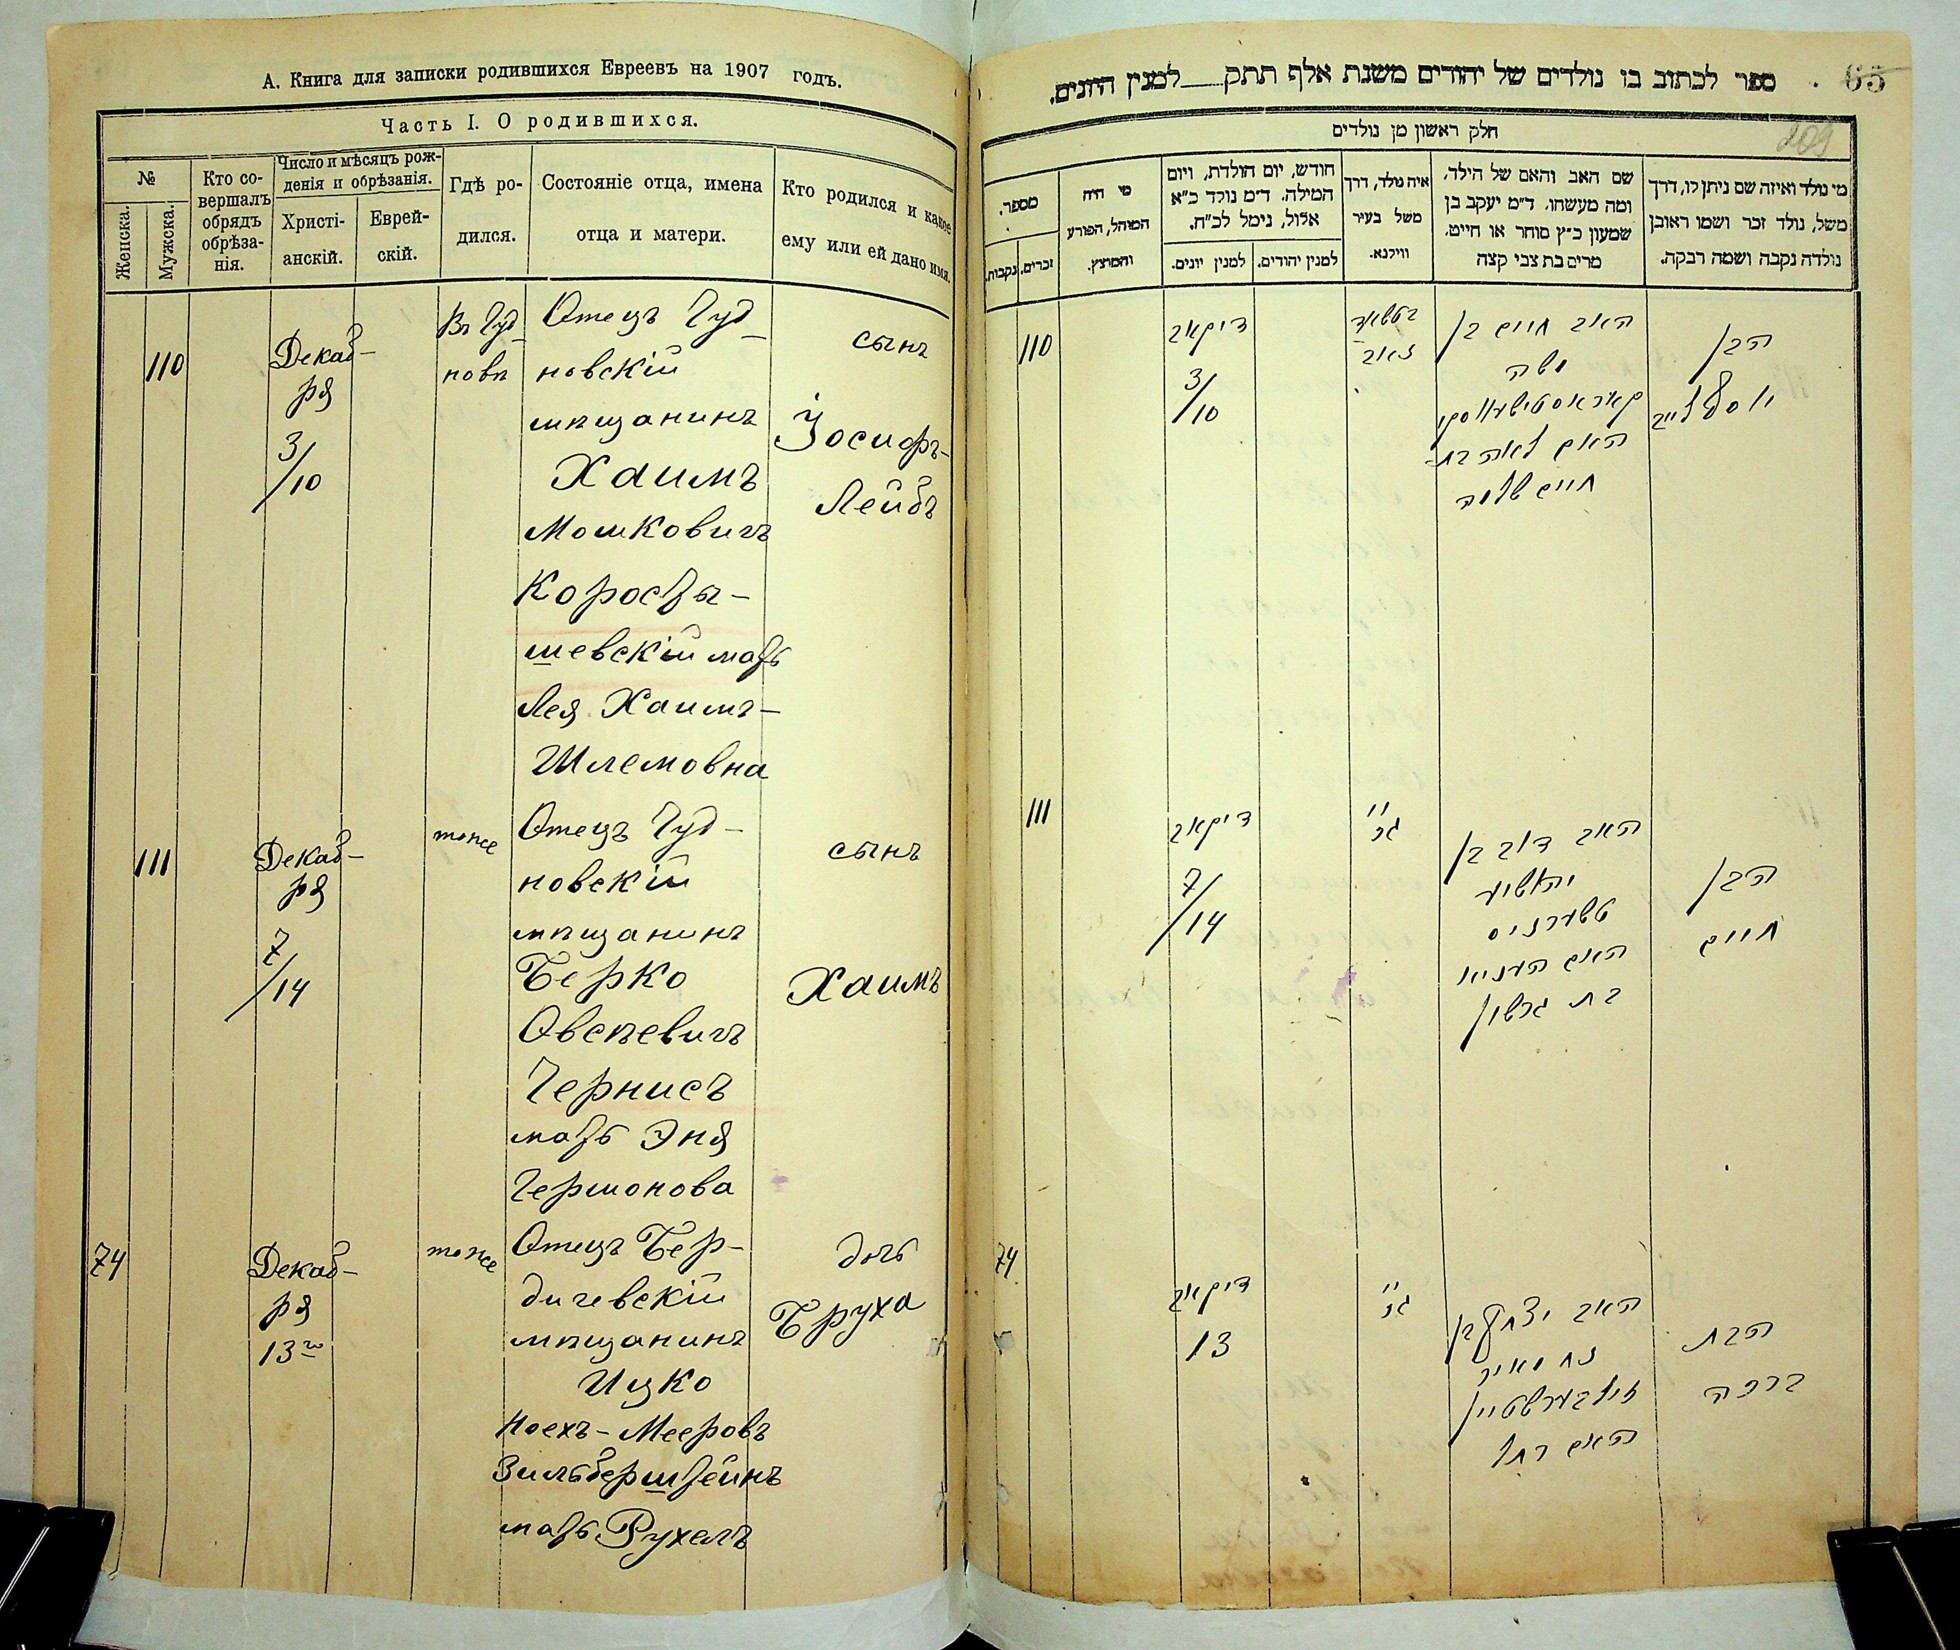 А. Книга для записки родившихся Евреевъ на 1907 годъ.
Часть I. О родившихся.
№
Женска.
Мужска.
Кто совершалъ обрядъ обрѣзанія.
Число и мѣсяцъ рожденія и обрѣзанія.
Христіанскій.
Еврейскій.
Гдѣ родился.
Состояніе отца, имена отца и матери.
Кто родился и какое ему или ей дано имя.
110
Декаб-
ря
3/10
Въ Чуд
новѣ
Отецъ Чуд
новскій
мѣщанинъ
Хаимъ
Мошковичъ
Коросты-
шевскій мать
Лея Хаимъ-
Шлемовна
сынъ
Іосифъ-
Лейбъ
111
Декаб-
ря
7/14
тоже
Отецъ Чуд-
новскій
мѣщанинъ
Берко
Овсѣевичъ
Чернисъ
мать Эня
Гершонова
сынъ
Хаимъ
74
Декаб-
ря
13го
тоже
Отецъ Бер-
дичевскій
мѣщанинъ
Ицко
Ноехъ-Мееровъ
Зильберштейнъ
мать Рухель
дочь
Бруха
ספר לכתוב בו נולדים של יהודים משנת אלף תתק למנין היונים.
65
209
חלק ראשון מן נולדים
מספר.
נקבות.
זכרים.
מי היה
המוהל, הפורע
והמוצץ.
חודש, יום הולדת, ויום
המילה. ד״מ נולד כ״א
אלול, נימל לכ״ח.
למנין יונים.
למנין יהודים.
איה נולד, דרך
משל בעיר
ווילנא.
שם האב והאם של הילד,
ומה מעשהו. ד״מ יעקב בן
שמעון כ״ץ סוחר או חייט,
מרים בת צבי קצה
מי נולד ואיזה שם ניתן לו, דרך
משל, נולד זכר ושמו ראובן
נולדה נקבה ושמה רבקה.
110
דיקאב
3/10
בטשוד
נאוו
האב חיים בן
משה
קאראסטישעווסקי
האם לאה בת
חיים שלמה
הבן
יוסף לייב
111
דיקאב
7/14
האב דוב בן
יהושיע
טשערניס
האם העניא
בת גרשון
הבן
חיים
74
דיקאב
13
האב יצחק בן
נח מאיר
זילבערשטיין
האם רחל
הבת
ברכה